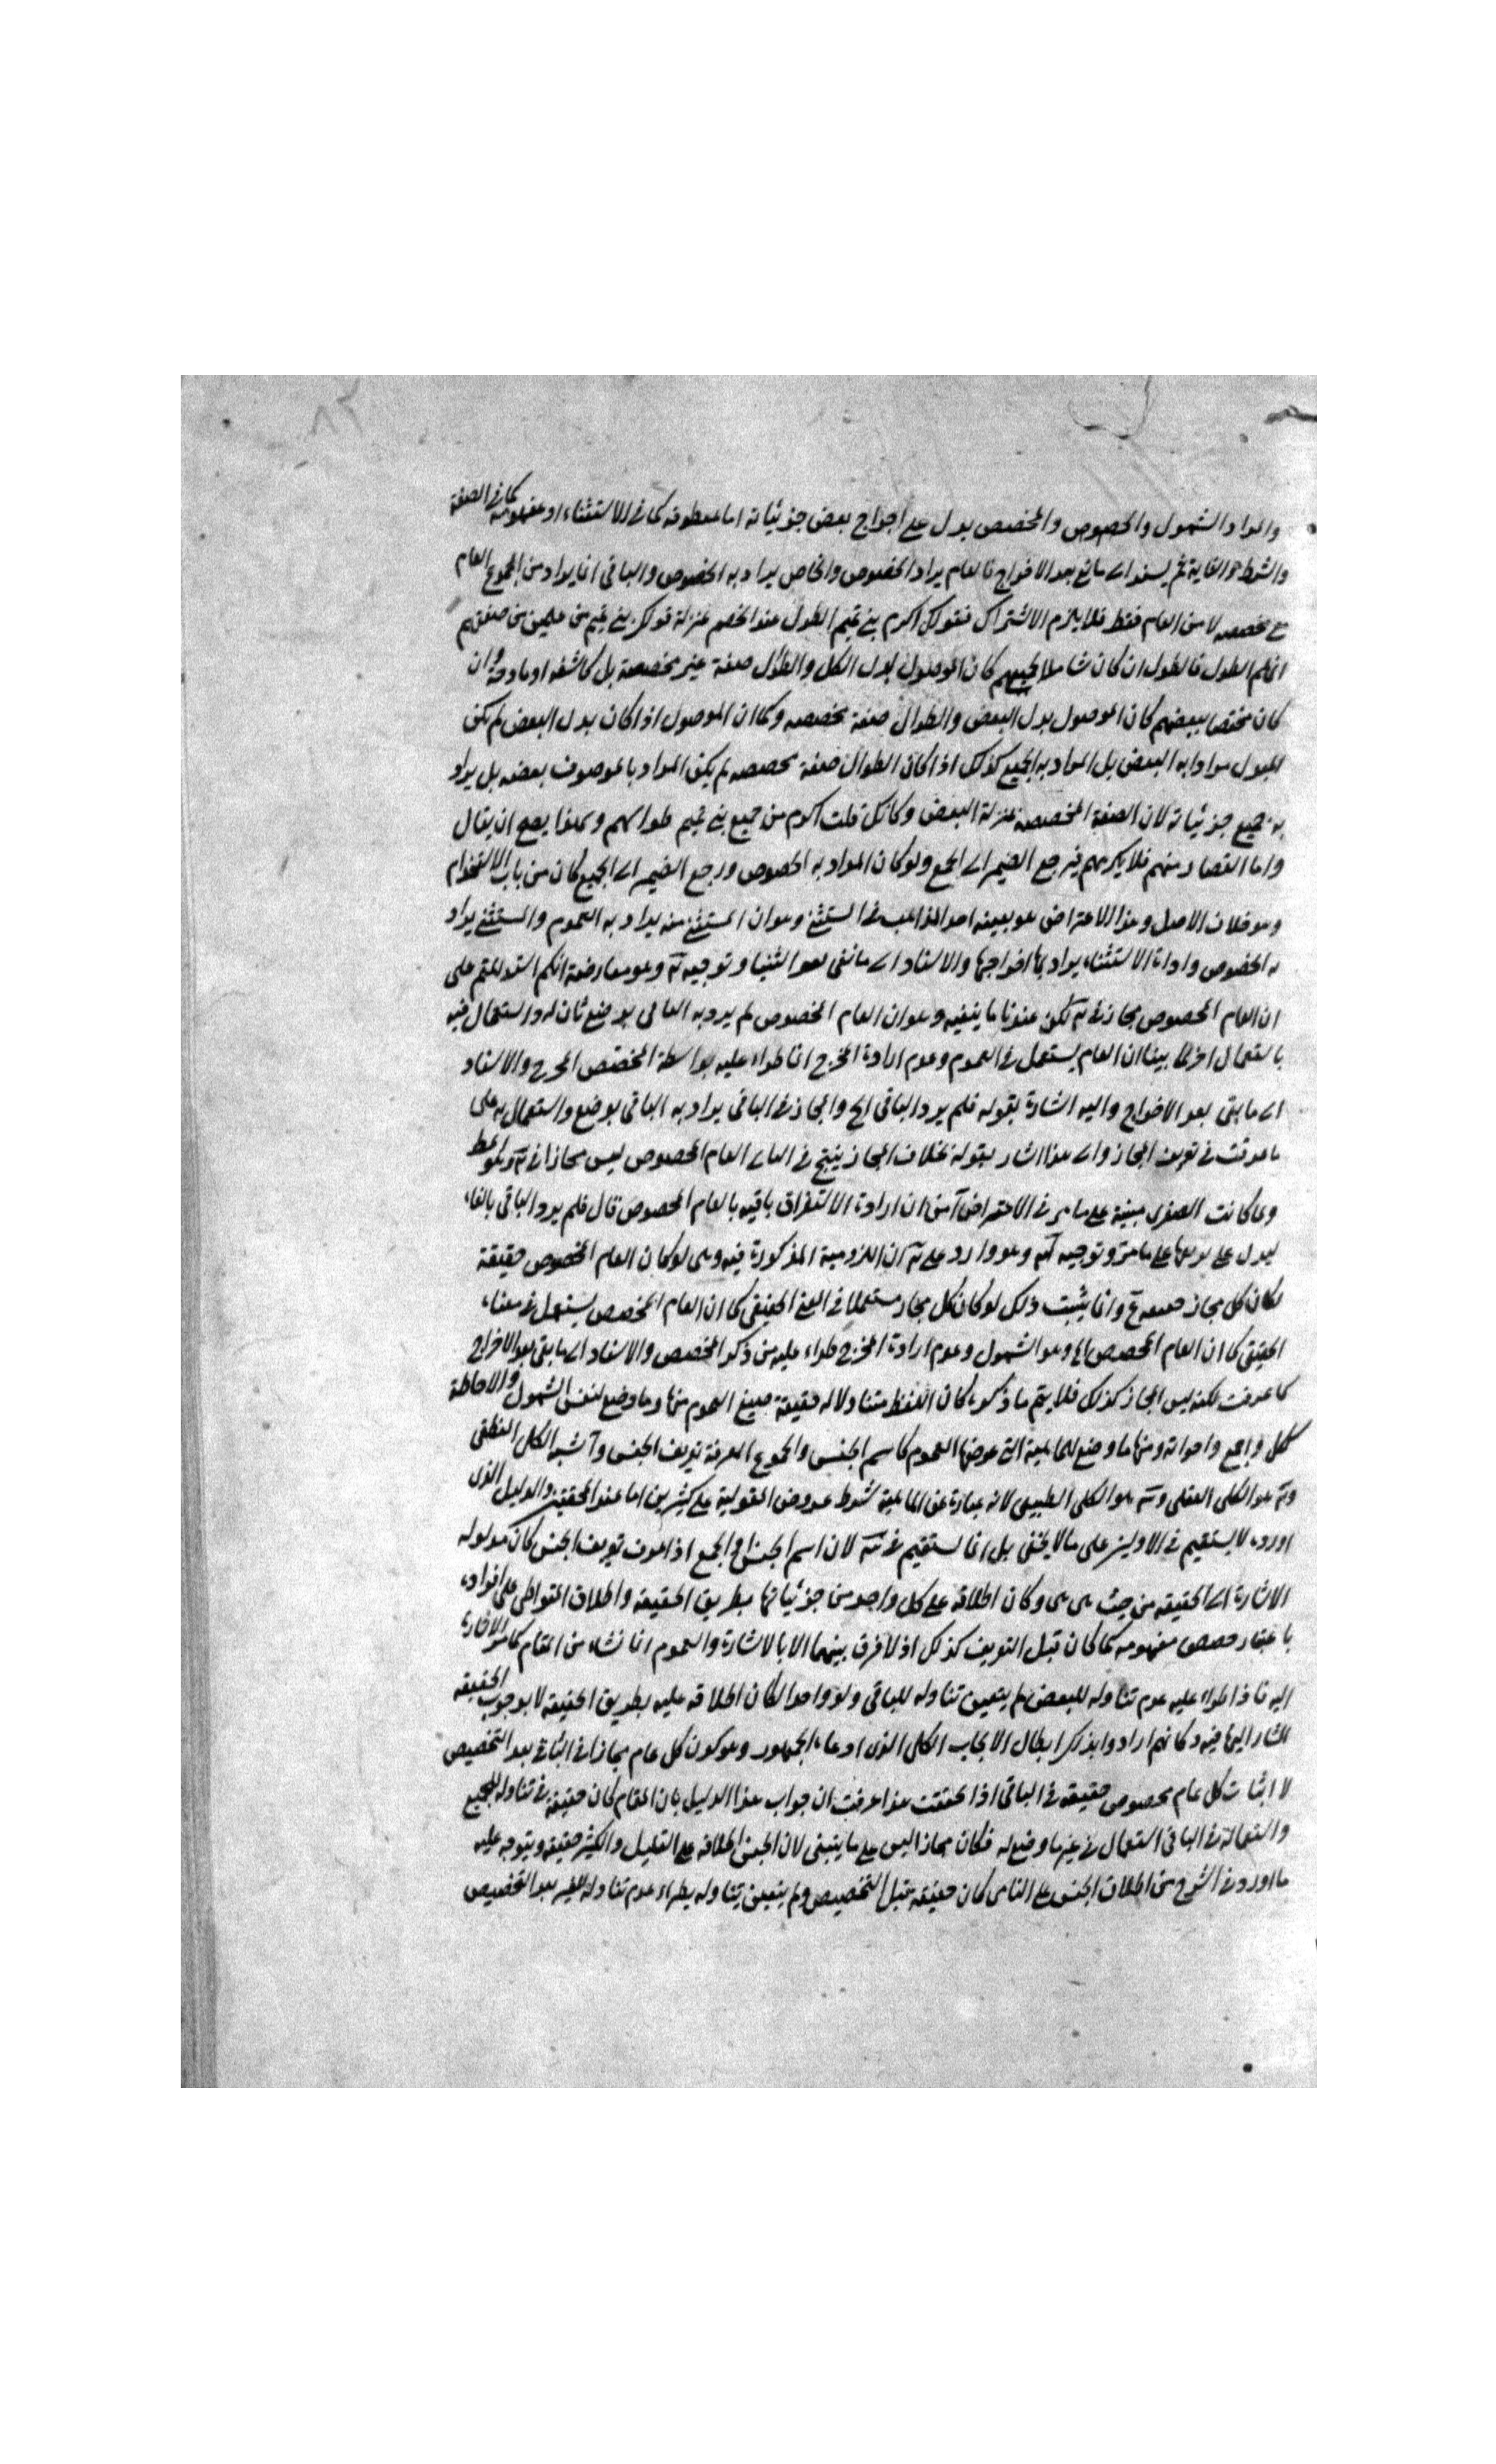 والمراد الشمول والخصوص والمخصص يدل على اخراج بعض جزئياته اما بمنطوقه كما في الاستثناء او بمفهومه كما في الصفة
والشرط والغاية ثم يسند الى ما بقى بعد الاخراج فالعام يراد الخصوص والخاص يراد به الخصوص والباقي انما يراد من المجموع العام
مع مخصصه لا من العام فقط فلا يلزم الاشتراك فقولك اكرم بني تميم الطول عند الخصم بمنزلة قولك بني تميم من علمت من صفتهم
انهم الطول فالطول ان كان شاملا لجميعهم كان الموصول بدل الكل والطوال صفة غير مخصصة بل كاشفه او مادحة وان
كان مختصا ببعضهم كان الموصول بدل البعض والطوال صفة مخصصه وكما ان الموصول اذا كان بدل البعض لم يكن
المبدل مرادا به البعض بل المراد به الجميع كذلك اذا كان الطوال صفة مخصصه لم يكن المراد بالموصوف بعضه بل يراد
به جميع جزئياته لان الصفة المخصصه بمنزلة البعض وكانك قلت اكرم من جميع بني تميم طوالهم ولهذا يصح ان يقال
واما القصار منهم فلا يكرمهم فيرجع الضمير الى الجمع ولو كان المراد به الخصوص ورجع الضمير الى الجميع كان من باب الاستخدام
وهو خلاف الاصل وهذا الاعتراض هو بعينه احد المذاهب في المستثنى وهو ان المستثنى منه يراد به العموم والمستثنى يراد
به الخصوص واداة الاستثناء يراد بها اخراجها والاسناد الى ما بقى بعد الثنيا وتوجيه وهو معارضة انكم استدللتم على
ان العام المخصوص مجاز في لكن عندنا ما ينفيه وهو ان العام المخصوص لم يرد به الباقي بوضع ثان له واستعمال فيه
باستعمال اخر لما بينا ان العام يستعمل في العموم وعدم ارادة المخرج انما طراء عليه بواسطة المخصص المخرج والاسناد
الى ما بقى بعد الاخراج واليه اشارة بقوله فلم يرد الباقي الخ والمجاز في الباقي يراد به الباقي بوضع واستعمال به على
ما عرفت في تعريف المجاز والى هذا اشار بقوله بخلاف المجاز ينتج في العام المخصوص ليس مجازا في وهو المط
ولما كانت الصغرى مبنية على ما مر في الاعتراض آمن ان ارادة الاستغراق باقيه بالعام المخصوص قال فلم يرد الباقي بالفاء
ليدل على على ما مر وتوجيه وهو وارد على ان اللزومية المذكورة فيه وهي لو كان العام المخصوص حقيقة
لكان كل مجاز وانما يثبت ذلك لو كان كل مجاز مستعملا في المعنى الحقيقي كما ان العام المخصص يستعمل في معناه
الحقيقي كما ان العام المخصص وهو الشمول وعدم ارادة المخرج طراء عليه من ذكر المخصص والاسناد الى ما بقى بعد الاخراج
كما عرفت لكنه ليس المجاز كذلك فلا يتم ما ذكره كان اللفظ متناولا له حقيقة صيغ العموم منها وما وضع لنفس الشمول والاحاطة
ككل واجمع واخواته ومنها ما وضع للماهية التي عرضها العموم كاسم الجنس والجموع المعرفة تعريف الجنس واشبه الكل المنطقي
و هو الكلي العقلي و هو الكلي الطبيعي لانه عبارة عن الماهية بشرط عروض المقولية على كثيرين اما عند المحققين والدليل الذي
اورده لا يستقيم في الاولين على ما لا يخفى بل انما يستقيم في لان اسم الجنس والجمع اذا عرف تعريف الجنس كان مدلوله
الاشارة الى الحقيقه من حيث هي هي وكان اطلاقه على كل واحد من جزئياتها بطريق الحقيقه واطلاق المتواطي على افراده
باعتبار حصص مفهومه كما كان قبل التعريف كذلك اذ لا فرق بينهما الا بالاشارة والعموم انما نشاء من المقام كما مر الاشارة
اليه فاذا طراء عليه عدم تناوله للبعض لم يتعين تناوله للباقي ولو واحدا لكان اطلاقه عليه بطريق الحقيقه لا بوجوب الحقيقه
المشار اليها فيه وكانهم ارادوا بذلك ابطال الايجاب الكلي الذي ادعاه الجمهور وهو كون كل عام مجازا في الباقي بعد التخصيص
لا اثبات كل عام مخصوص حقيقه في الباقي اذا تحققت هذا عرفت ان جواب هذا الدليل بان المقام كان حقيقه في تناوله للجميع
واستعماله في الباقي استعمال في غير ما وضع له فكان مجازا ليس على ما ينبغي لان الجنس اطلاقه على القليل والكثير حقيقه ويتوجه عليه
ما اورد في الشرح من اطلاق الجنس على الباقي كان حقيقه قبل التخصيص ولم يتعين تناوله بطراء عدم تناوله للغير بعد التخصيص